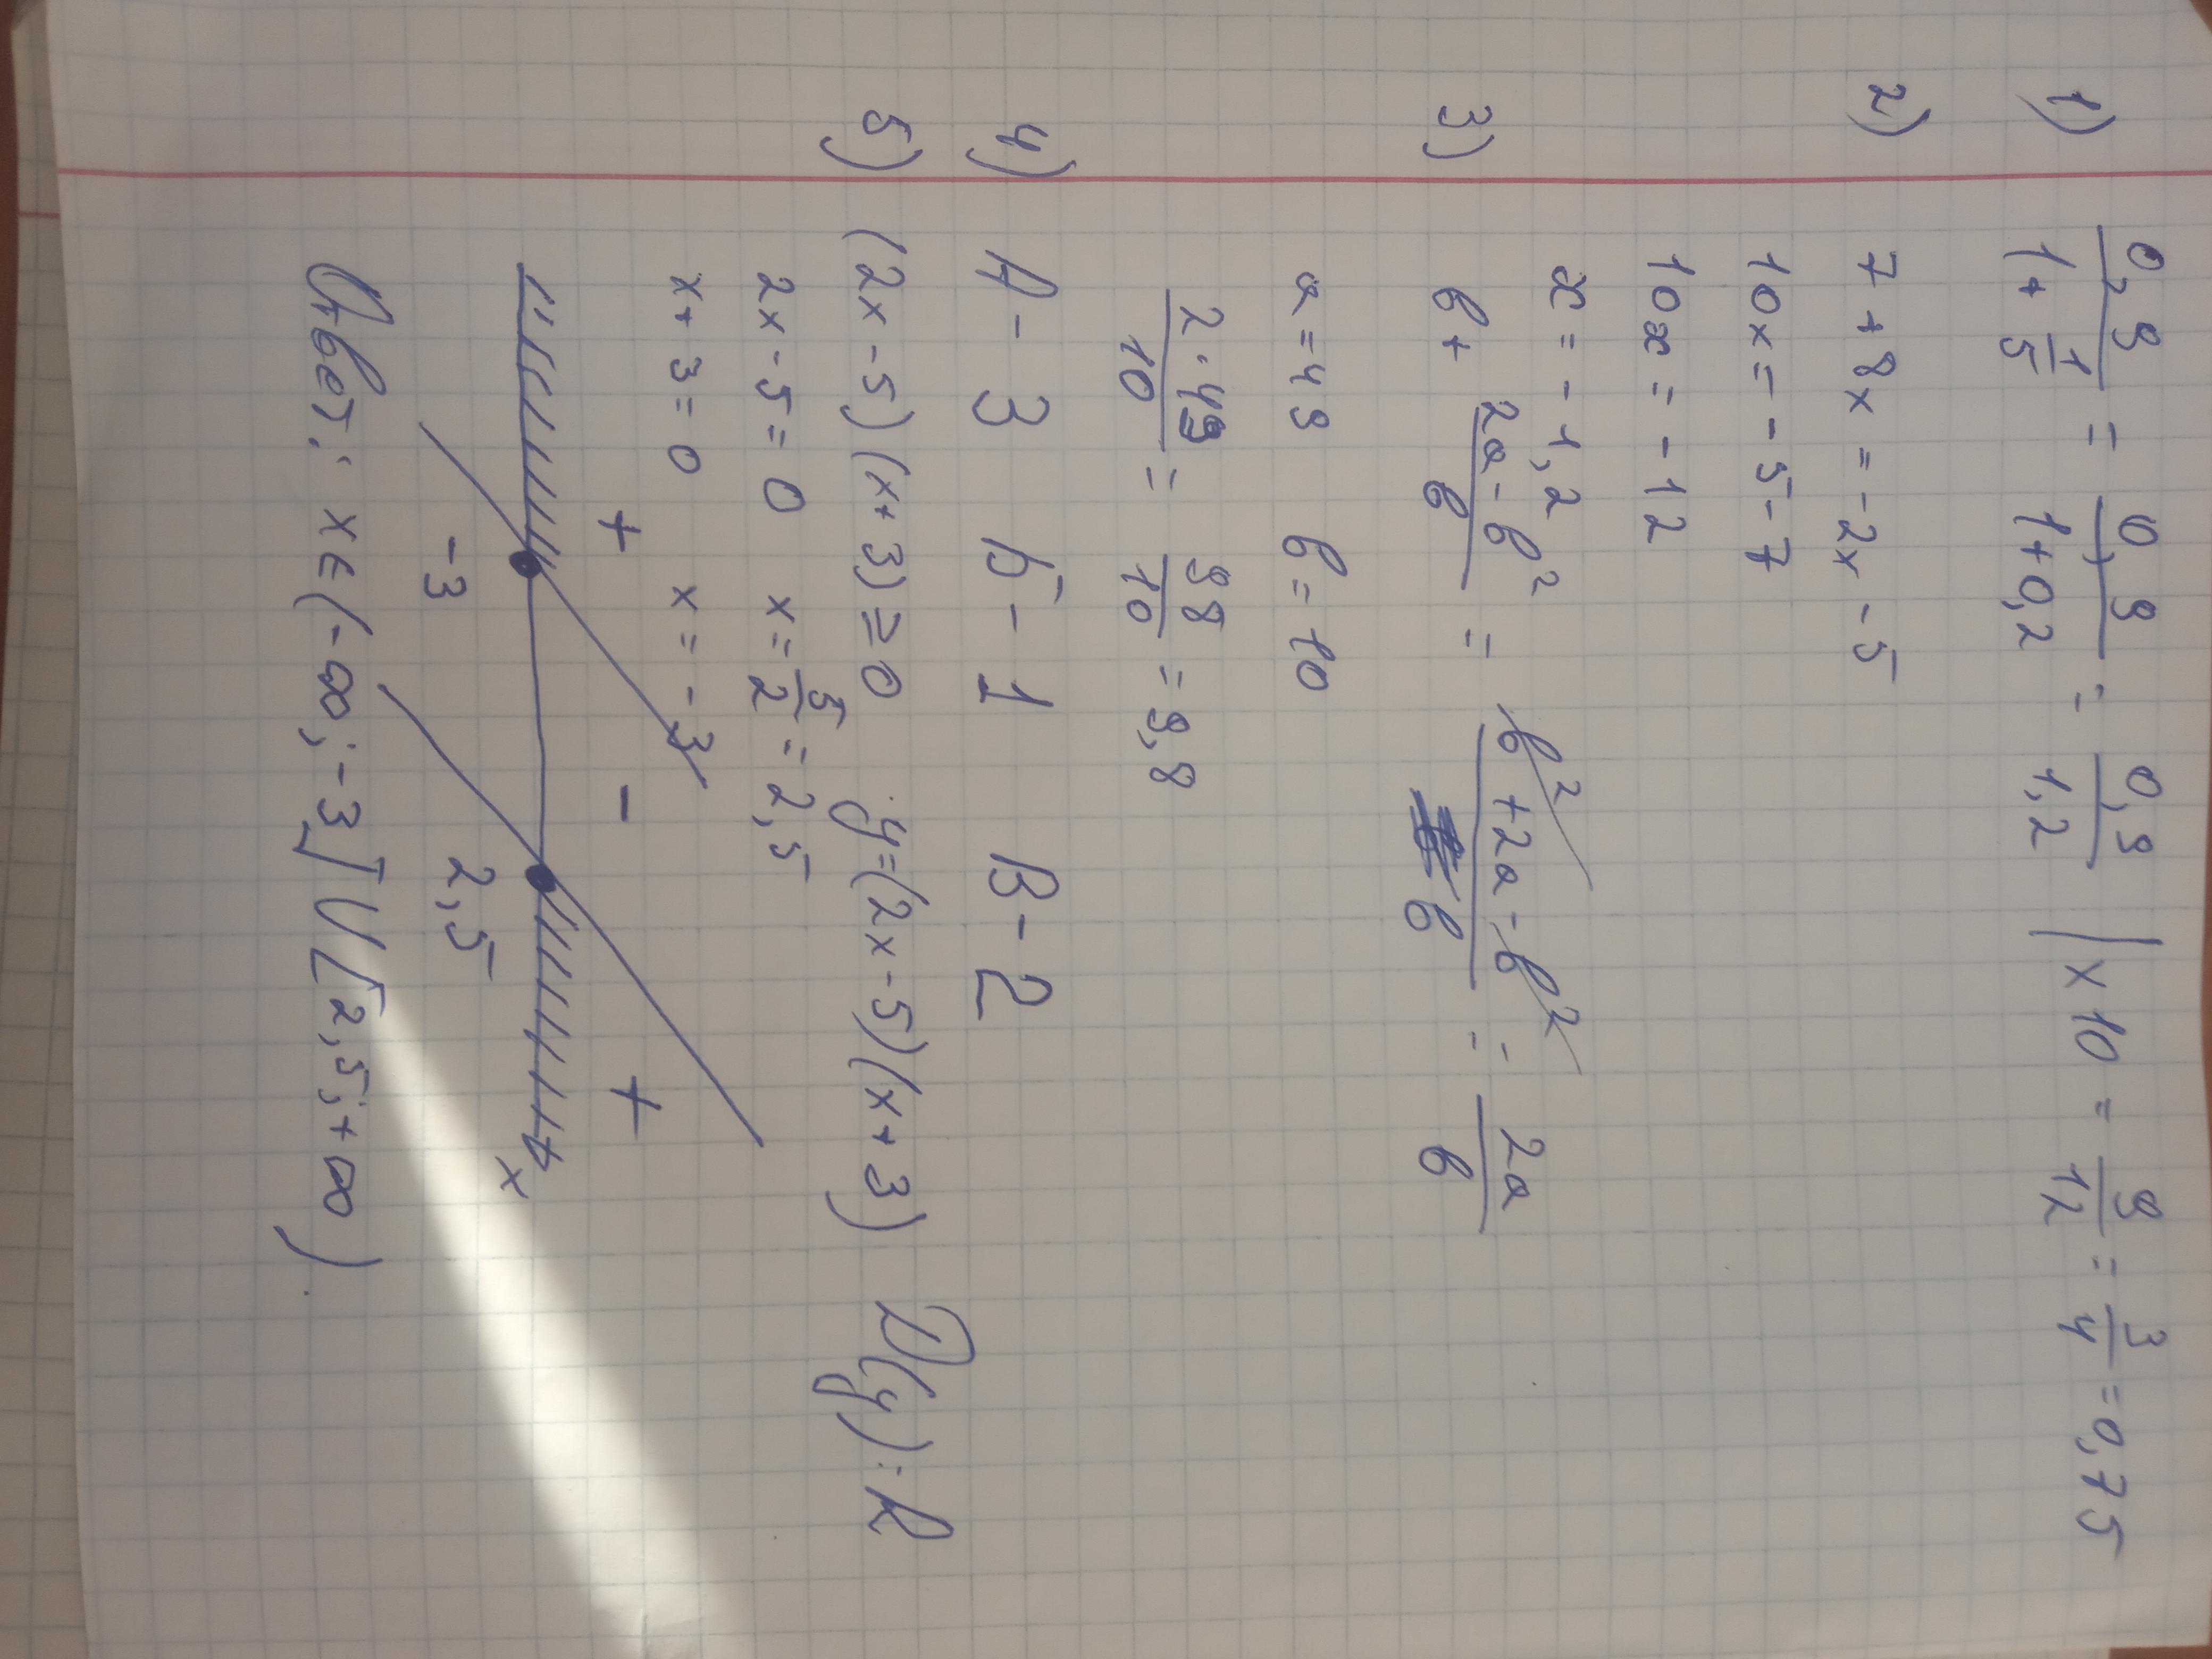 1) 0,9/(1+1/5) = 0,9/(1+0,2) = 0,9/1,2 | x 10 = 9/12 = 3/4 = 0,75
2) 7 + 8x = -2x - 5
10x = -5-7
10x = -12
x = -1,2
3) в + (2a-в²)/в = (в² + 2a - в²)/в = 2a/в
a = 49 в = 10
2·49/10 = 98/10 = 9,8
4) А - 3 Б - 1 В - 2
5) (2x-5)(x+3) ≥ 0 y=(2x-5)(x+3) D(y): R
2x-5=0 x = 5/2 = 2,5
x+3=0 x = -3
+ - +
-3 2,5 x
Ответ: x∈(-∞;-3]U[2,5;+∞).